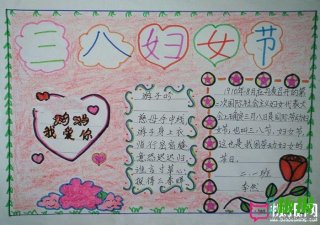 三八妇女节
妈妈
我爱你
游子吟
慈母手中线
游子身上衣
临行密密缝
意恐迟迟归
谁言寸草心
报得三春晖
1910年8月在丹麦召开的第
二次国际社会主义妇女代表大
会上
三月八日
女节,也叫三八节、妇女节。
这也是我国劳动妇女的
节日。
二.一班